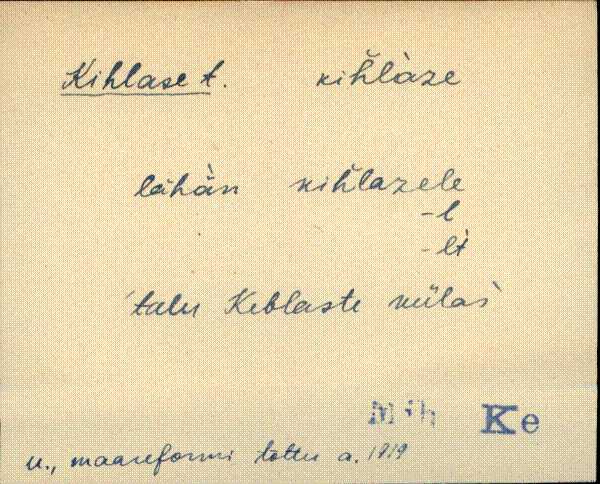 Kihlase t. kiȟlàze
lähä̀n kiȟlazele
-l
-lt
talu Keblaste külas
Mih Ke
u., maareformi tõttu a. 1919